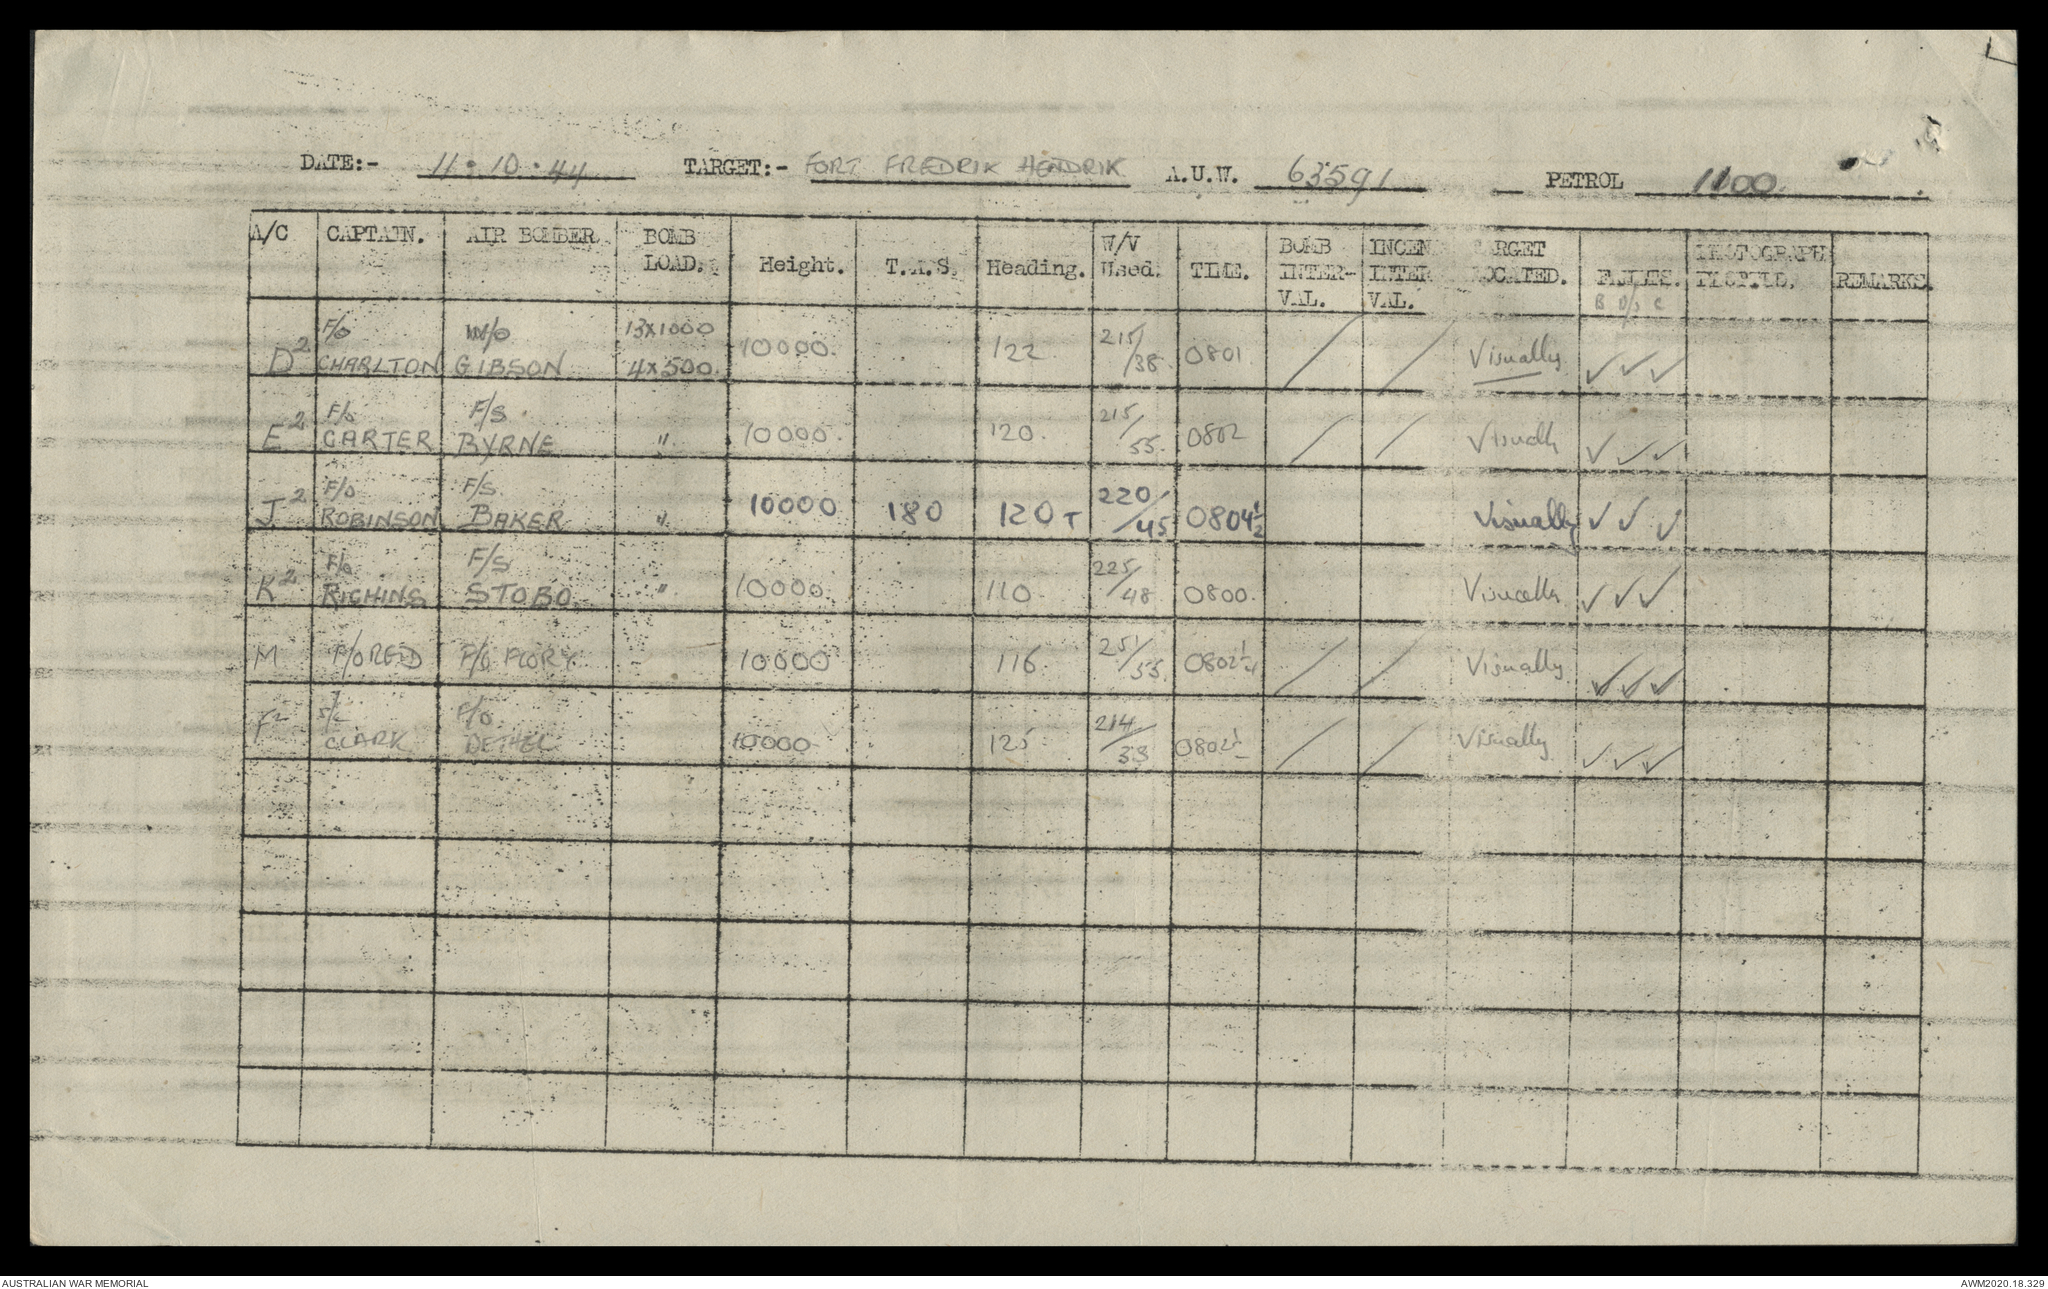 DATE:- 11.10.44 TARGET:- FORT FREDRIK HENDRIK A.U.W. 63591 PETROL 1100.
A/C CAPTAIN. AIR BOMBER BOMB LOAD. Height. T.A.S. Heading. W/V Used. TIME. BOMB INTER-VAL. INCEN INTER VAL. ARGET LOCATED. FAULTS. B D/S C PHOTOGRAPH REMARKS.
D2 F/O CHARLTON W/O GIBSON 13X1000 4X500. 10000. 122 215/38. 0801 / / Visually ✓✓✓
E2 F/O CARTER F/S. BYRNE " 10000. 120. 215/55. 0802 / / Visually ✓✓✓
J2 F/O ROBINSON F/S. BAKER " 10000 180 120T 220/45 0804½ Visually ✓✓✓
K2 F/O RICHINS F/S STOBO. " 10000. 110 225/48 0800. Visually ✓✓✓
M F/O REID F/O FLORY. 10000 116. 251/55. 0802¼ / / Visually ✓✓✓
F2 S/L CLARK F/O BETHEL 10000 125 214/33 / / Visually ✓✓✓
AUSTRALIAN WAR MEMORIAL
AWM2020.18.329